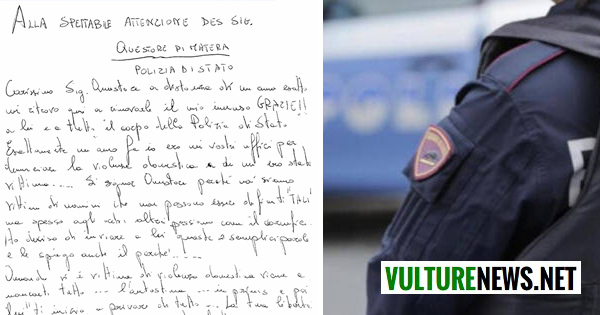 ALLA SPETTABILE ATTENZIONE DEL SIG.
QUESTORE DI MATERA
POLIZIA DI STATO
Carissimo Sig. Questore a distanza di un anno esatto
mi ritrovo qui a rinnovarle il mio immenso GRAZIE!!
a lei e a tutto il corpo della Polizia di Stato.
Esattamente un anno fa io ero nei vostri uffici per
denunciare la violenza domestica di cui ero stata
vittima.... Si signor Questore perché noi siamo
vittime di uomini che non possono essere definiti "TALI"
ma spesso agli occhi altrui passiamo come il carnefice.
Ho deciso di inviare a lei queste 2 semplici parole
e le spiego anche il perché...!
Quando si è vittima di violenza domestica viene a
mancarti tutto... l'autostima... in primis e poi
inizi a privare di tutto... La tua libertà
VULTURENEWS.NET